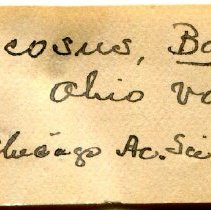 cosus, Bo
Ohio Va
hicago Ac. Sci